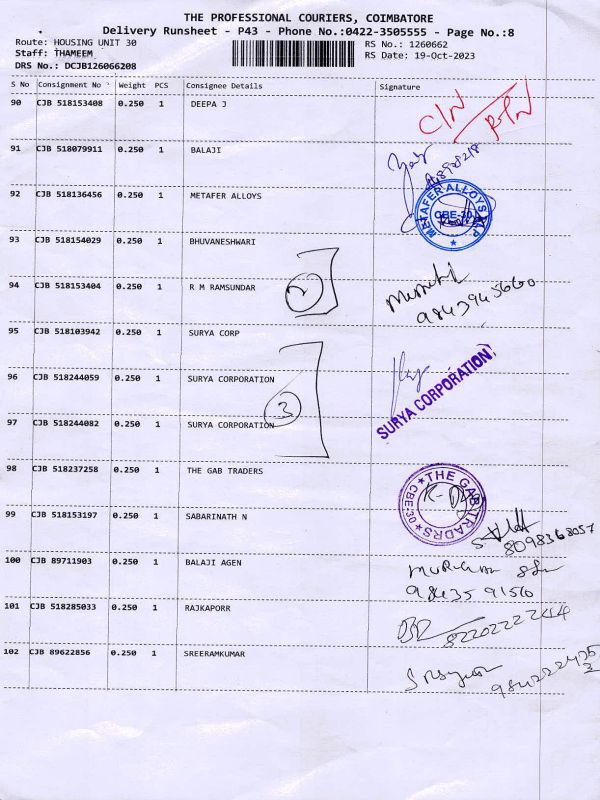 THE PROFESSIONAL COURIERS, COIMBATORE
Delivery Runsheet - P43 - Phone No.:0422-3505555 - Page No.:8
Route: HOUSING UNIT 30 RS No.: 1260662
Staff: THAMEEM RS Date: 19-Oct-2023
DRS No.: DCJB126066208
S No Consignment No Weight PCS Consignee Details Signature
90 CJB 518153408 0.250 1 DEEPA J
C/N
91 CJB 518079911 0.250 1 BALAJI
92 CJB 518136456 0.250 1 METAFER ALLOYS
METAFER ALLOYS LLP
CBE-30
93 CJB 518154029 0.250 1 BHUVANESHWARI
94 CJB 518153404 0.250 1 R M RAMSUNDAR
2
9843945660
95 CJB 518103942 0.250 1 SURYA CORP
96 CJB 518244059 0.250 1 SURYA CORPORATION
SURYA CORPORATION
3
97 CJB 518244082 0.250 1 SURYA CORPORATION
98 CJB 518237258 0.250 1 THE GAB TRADERS
THE GAB TRADRS
CBE-30
99 CJB 518153197 0.250 1 SABARINATH N
8098368057
100 CJB 89711903 0.250 1 BALAJI AGEN
98435 91560
101 CJB 518285033 0.250 1 RAJKAPORR
102 CJB 89622856 0.250 1 SREERAMKUMAR